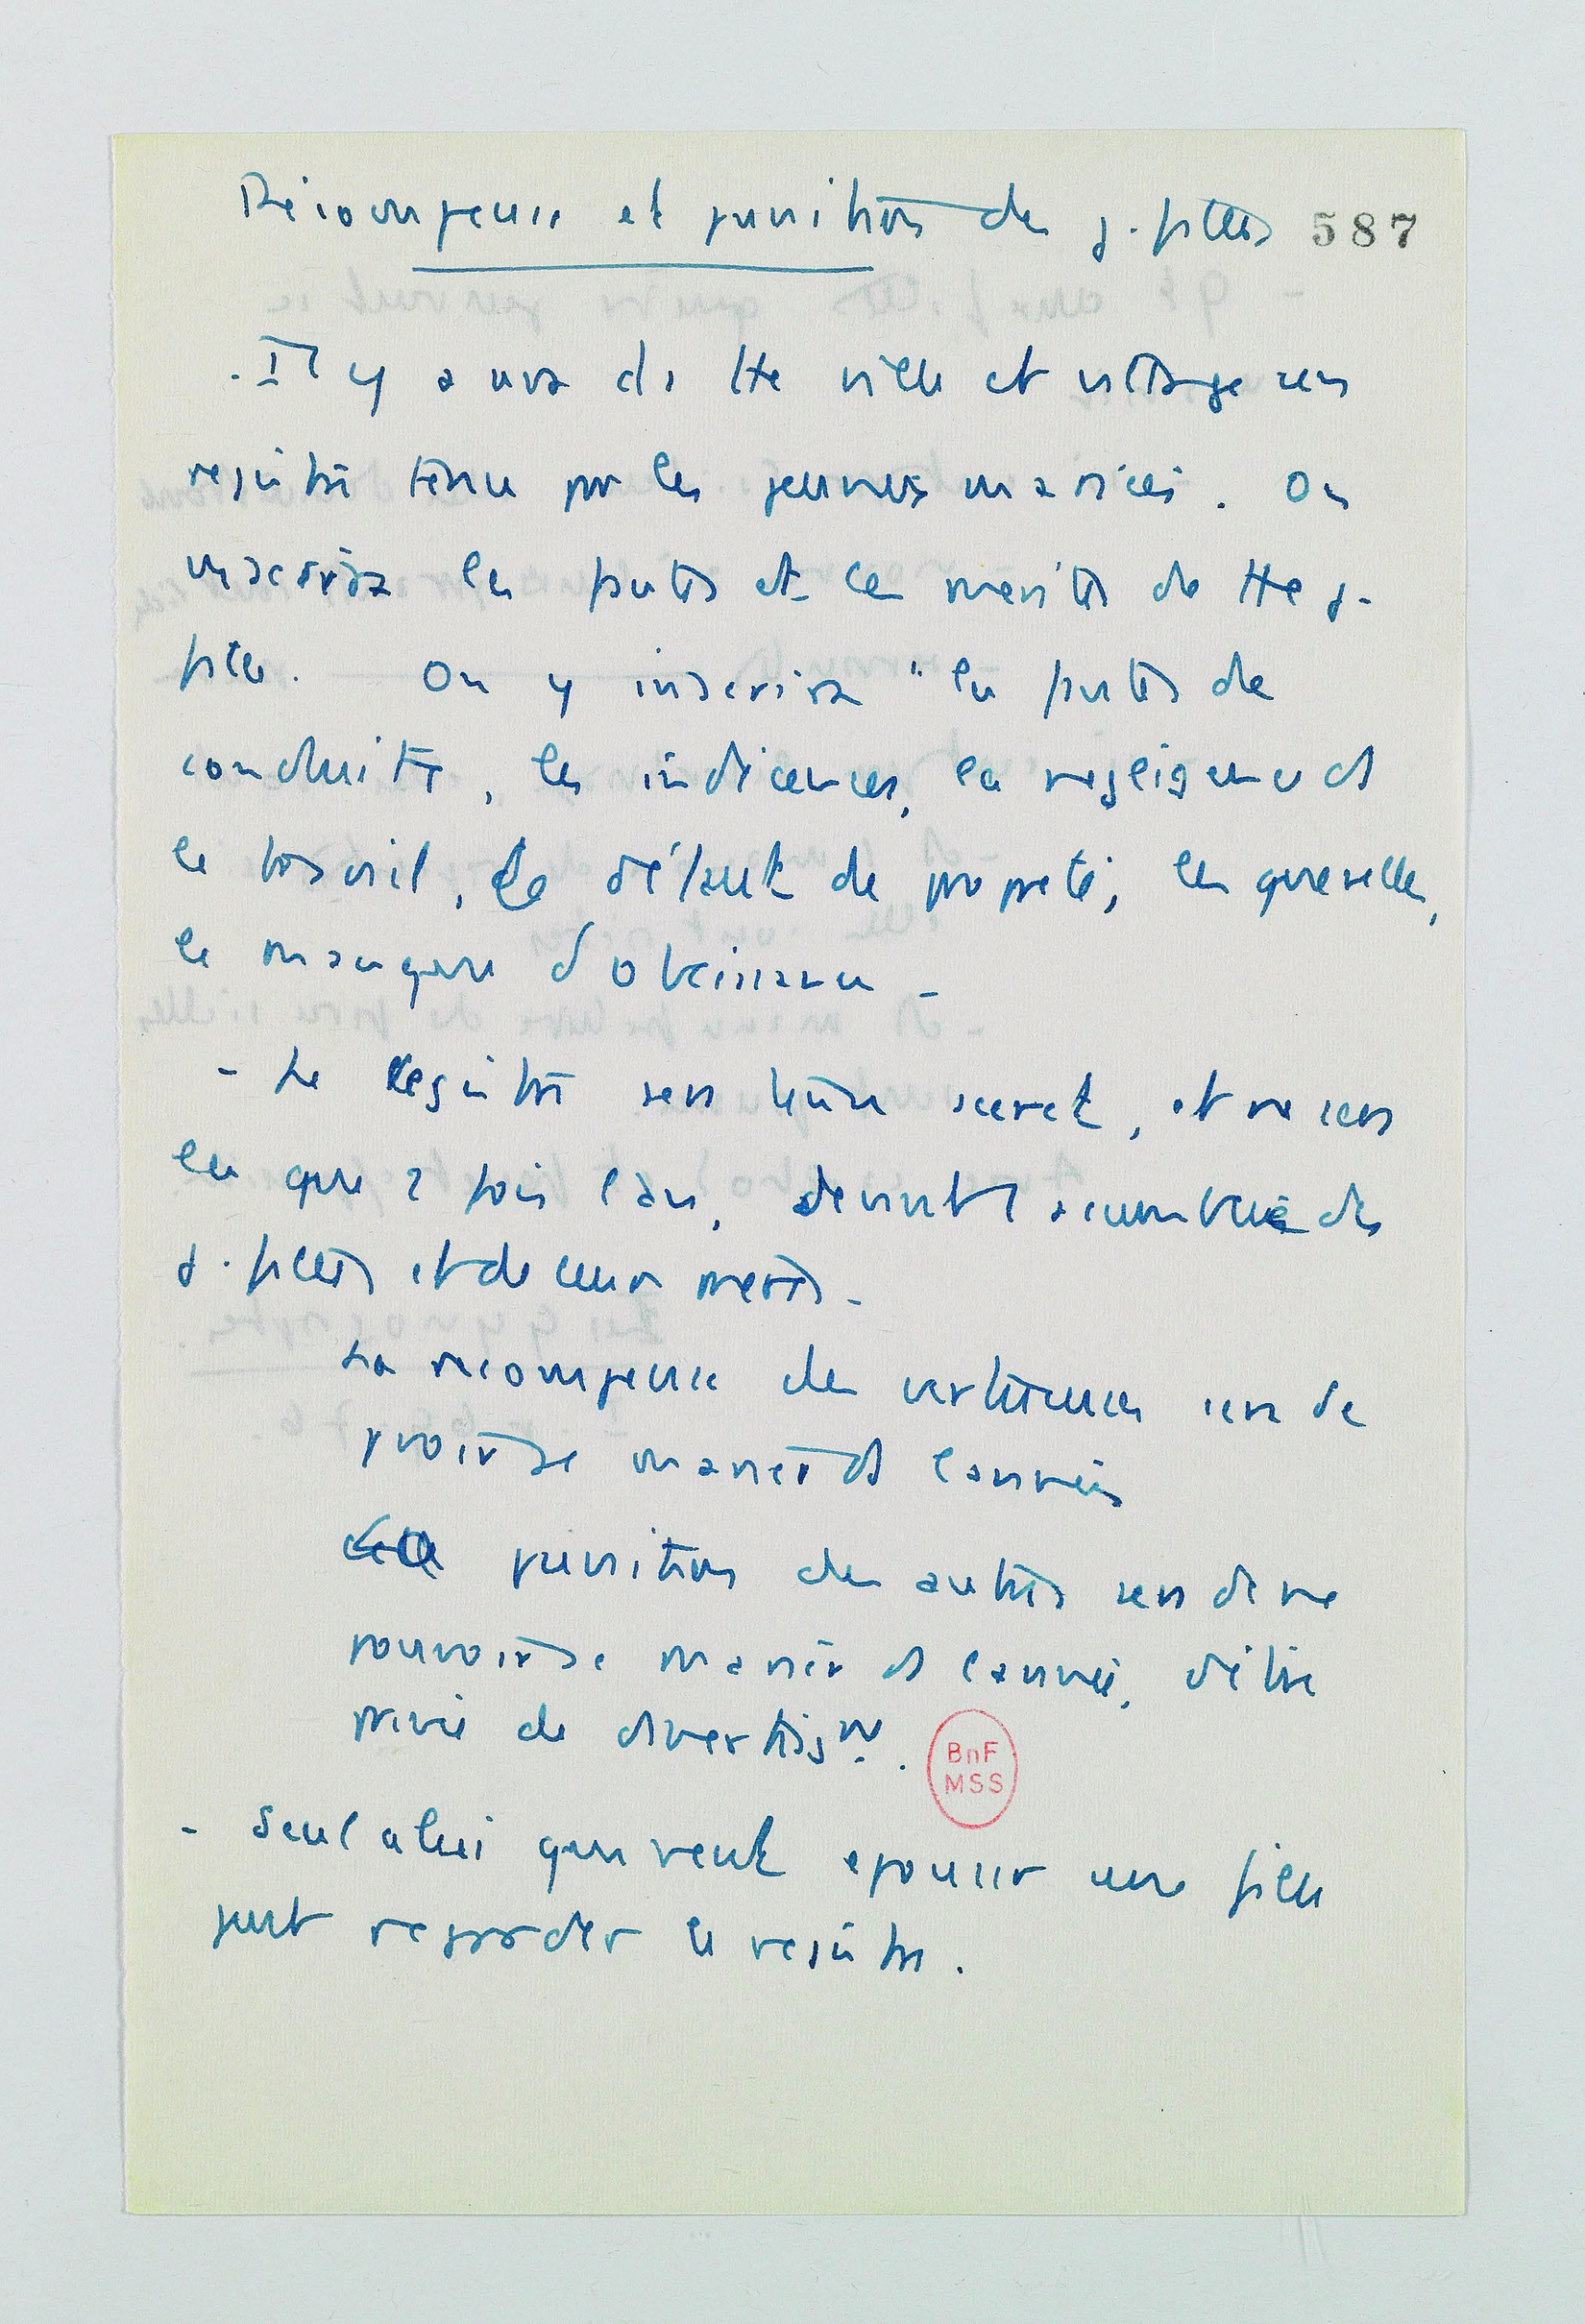 Récompense et punition des j. filles 587
. Il y aura ds tte ville et village un
registre tenu par les jeunes mariées. On
inscrira les fautes et les mérites de tte j.
fille. On y inscrira "les fautes de
conduite, les indécences, la négligence ds
le travail, le défaut de propreté, les querelles,
le manque d'obéissance -
- Le Registre sera tenu secret, et ne sera
lu que 2 fois l'an, devant l'assemblée des
j. filles et de leurs mères -
La récompense des vertueuses sera de
pvoir se marier ds l'année
La punition des autres sera de ne
pouvoir se marier ds l'année, d'être
privée de divertissmt.
BnF
MSS
- Seul celui qui veut épouser une fille
peut regarder le registre.